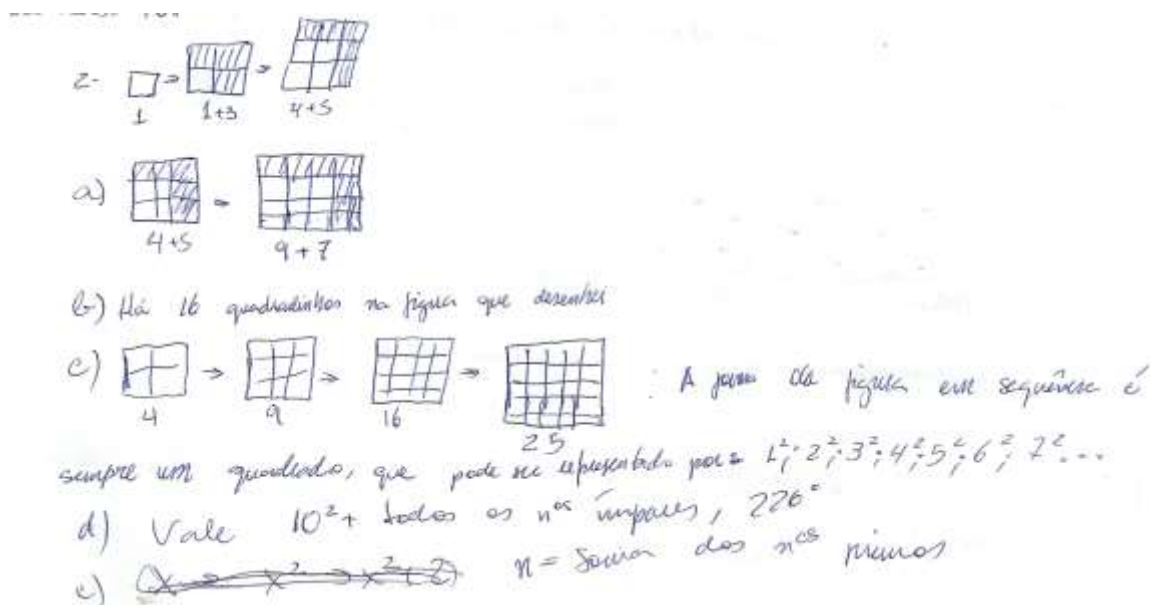 2-
1 1+3 4+5
a)
4+5 9+7
b) Há 16 quadradinhos na figura que desenhei
c)
4 9 16 25
A da figura em sequência é
sempre um quadrado, que pode ser representado por 1²; 2²; 3²; 4²; 5²; 6²; 7²...
d) Vale 10² + todos os nºs ímpares, 226
e) n = Soma dos nºs primos